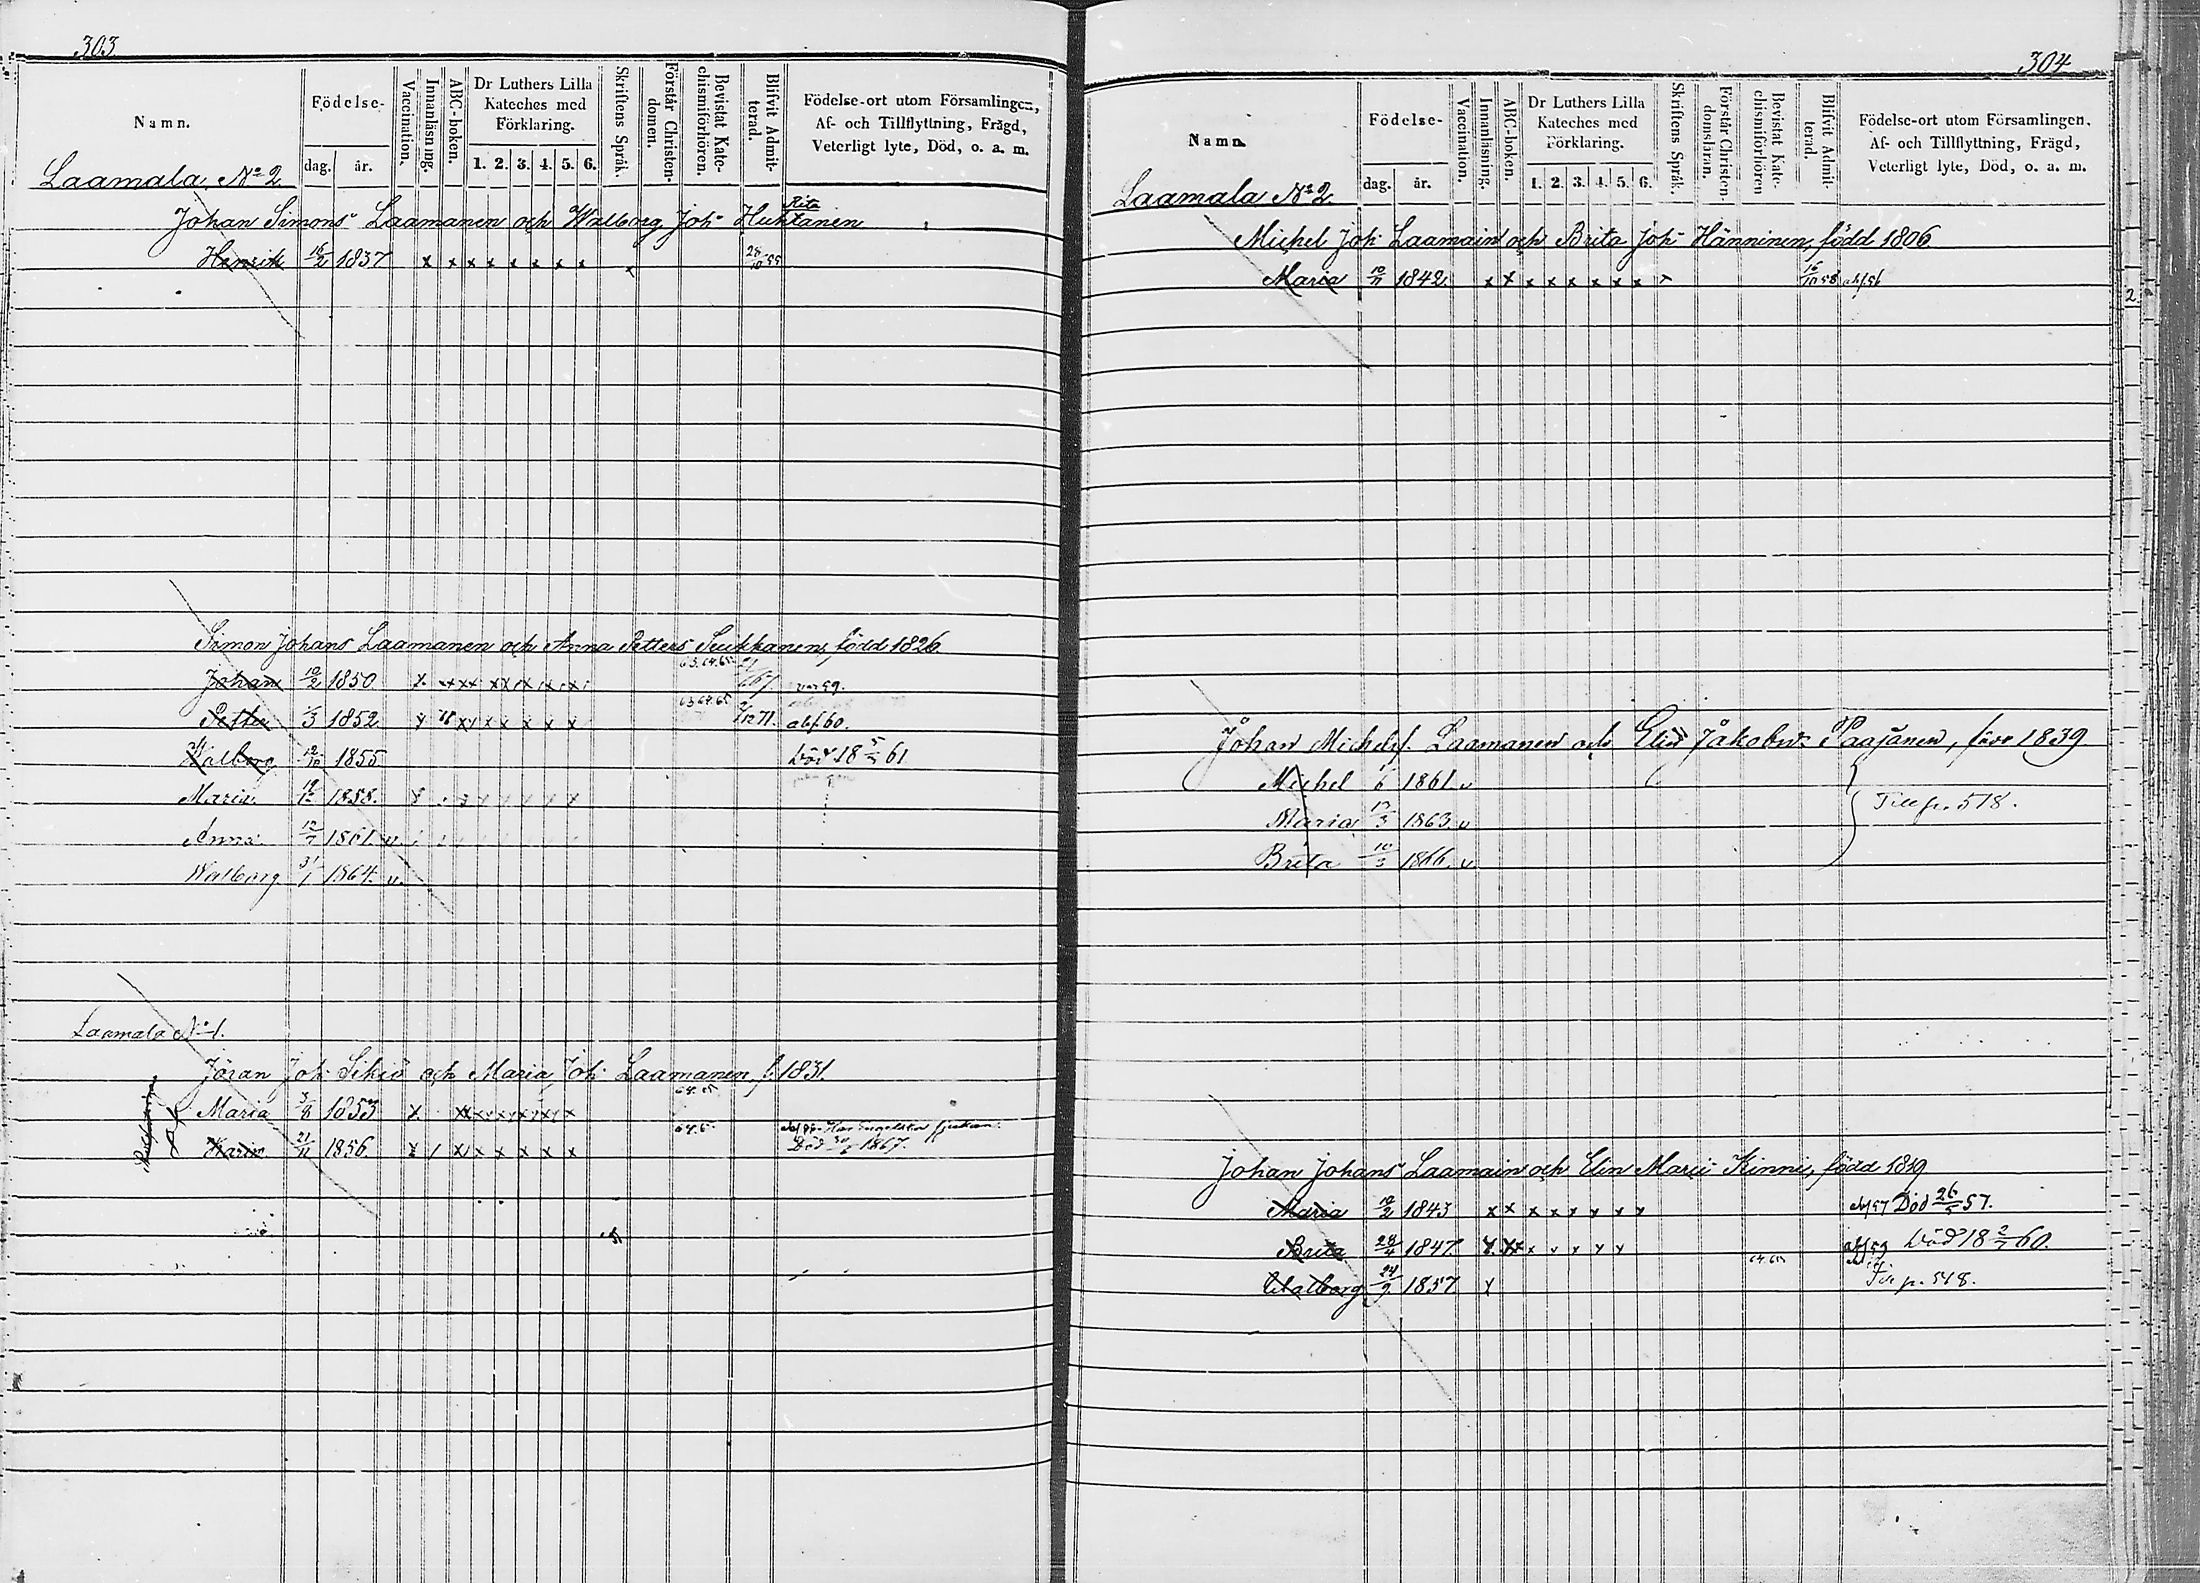 303
Namn.
Födelse-
dag.
år.
Vaccination.
Innanläsning.
ABC-boken.
Dr Luthers Lilla
Kateches med
Förklaring.
1. 2. 3. 4. 5. 6.
Skriftens Språk.
Förstår Christen-
domen.
Bevistat Kate-
chismiförhören.
Blifvit Admit-
terad.
Födelse-ort utom Församlingen,
Af- och Tillflyttning, Frägd,
Veterligt lyte, Död, o. a. m.
Laamala No 2
Rita
Johan Simons Laamanen och Walborg Joh Huhtanen
Henrik 16/2 1837 x x x x x x x x x 28/10 55
Simon Johans Laamanen och Anna Petters Suikkanen, född 1826
63.64.65
Johan 10/2 1850
63 64.65
Petter 1/3 1852 abs. 60.
Walborg 12/10 1855 Död 18 5/5 61
Maria 1858.
Anna 12/7 1861. v.
Walborg 31/1 1864. v.
Laamala No 1.
Jöran Joh Sikiö och Maria Joh Laamanen, f. 1831.
Maria 3/8 1853
Karin 21/11 1856. Död 1867.
304
Namn.
Födelse-
dag.
år.
Vaccination.
Innanläsning.
ABC-boken.
Dr Luthers Lilla
Kateches med
Förklaring.
1. 2. 3. 4. 5. 6.
Skriftens Språk.
Förstår Christen-
domsläran.
Bevistat Kate-
chismiförhören
Blifvit Admit-
terad.
Födelse-ort utom Församlingen,
Af- och Tillflyttning, Frägd,
Veterligt lyte, Död, o. a. m.
Laamala No 2.
Michel Joh Laamain och Brita Joh Hänninen, född 1806
Maria 10/11 1842 x x x x x x x x x 16/10 58 abs. 56
2
Johan Michelsf. Laamanen och Elin Jakobsd. Paajanen, född 1839
Michel 1/6 1861. v
Maria 1863. v Till p. 518.
Brita 10/3 1866. v
Johan Johans Laamain och Elin Mari Kinni, född 1819
Maria 12/2 1843 x x x x x x x x abs 57 Död 26/5 57.
Brita 28/4 1847 abs 59 Död 18 2/7 60.
64.65
Walborg 24/9 1857 x Till p. 548.